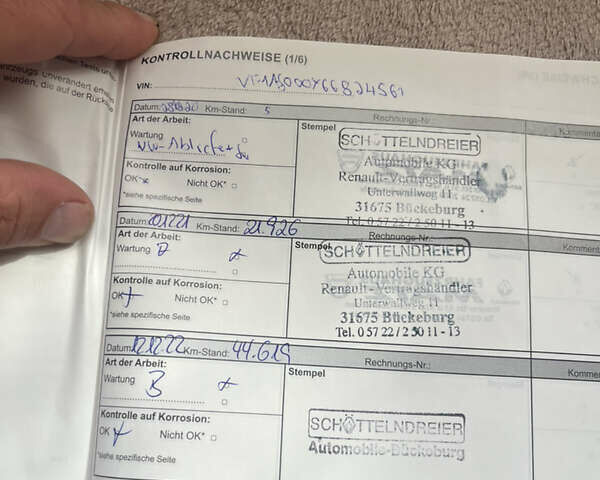 KONTROLLNACHWEISE (1/6)
VIN:
Datum: Km-Stand: 5 Rechnungs-Nr.: Kommenta
Art der Arbeit: Stempel
Wartung
Kontrolle auf Korrosion:
OK Nicht OK*
*siehe spezifische Seite
SCHÖTTELNDREIER
Automobile KG
Renault-Vertragshändler
Unterwallweg 11
31675 Bückeburg
Tel. 0 57 22 / 2 50 11 - 13
Datum: Km-Stand: 21.926 Rechnungs-Nr.: Komment
Art der Arbeit: Stempel
Wartung
Kontrolle auf Korrosion:
OK Nicht OK*
*siehe spezifische Seite
SCHÖTTELNDREIER
Automobile KG
Renault-Vertragshändler
Unterwallweg 11
31675 Bückeburg
Tel. 0 57 22 / 2 50 11 - 13
Datum: 12.12.22 Km-Stand: 44.619 Rechnungs-Nr.: Komme
Art der Arbeit: Stempel
Wartung B
Kontrolle auf Korrosion:
OK Nicht OK*
*siehe spezifische Seite
SCHÖTTELNDREIER
Automobile-Bückeburg